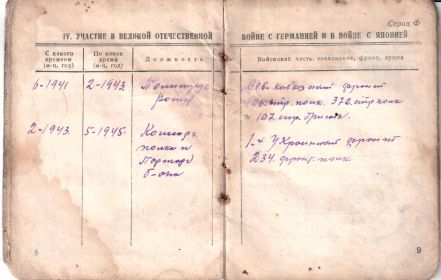 Серия Ф
IV. УЧАСТИЕ В ВЕЛИКОЙ ОТЕЧЕСТВЕННОЙ
ВОЙНЕ С ГЕРМАНИЕЙ И В ВОЙНЕ С ЯПОНИЕЙ
С какого времени (м-ц, год)
По какое время (м-ц, год)
Должность
Войсковая часть, соединение, фронт, армия
6-1941
2-1943
Политрук
роты
Сев. Кавказский фронт
стр. полк. 372 стр полк
и 107 стр. бригада.
2-1943
5-1945
полка и
б-она
1-й Украинский фронт
234 полк
8
9